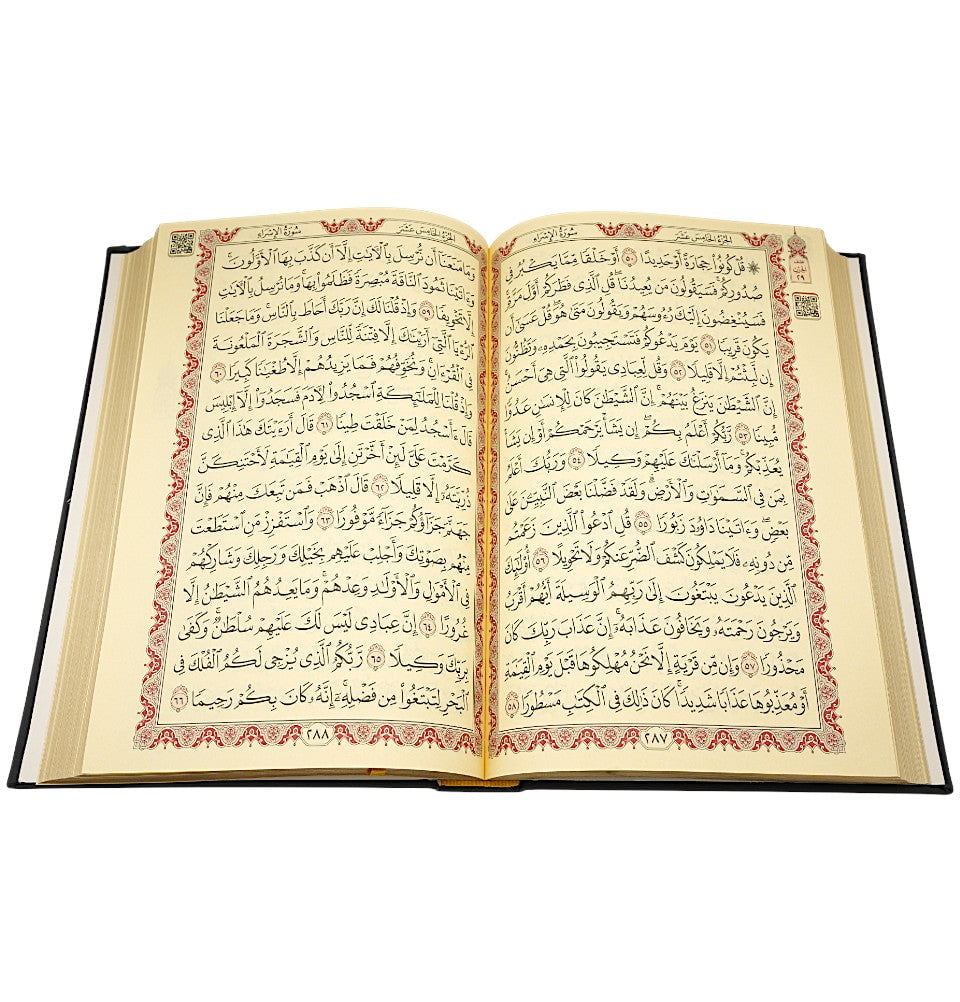 الجُزْءُ الخَامِسَ عَشَرَ سُورَةُ الإِسْرَاءِ
نصف
الحزب
٢٩
۞ قُلْ كُونُوا۟ حِجَارَةً أَوْ حَدِيدًا ٥٠ أَوْ خَلْقًا مِّمَّا يَكْبُرُ فِى
صُدُورِكُمْ ۚ فَسَيَقُولُونَ مَن يُعِيدُنَا ۖ قُلِ ٱلَّذِى فَطَرَكُمْ أَوَّلَ مَرَّةٍ ۚ
فَسَيُنْغِضُونَ إِلَيْكَ رُءُوسَهُمْ وَيَقُولُونَ مَتَىٰ هُوَ ۖ قُلْ عَسَىٰٓ أَن
يَكُونَ قَرِيبًا ٥١ يَوْمَ يَدْعُوكُمْ فَتَسْتَجِيبُونَ بِحَمْدِهِۦ وَتَظُنُّونَ
إِن لَّبِثْتُمْ إِلَّا قَلِيلًا ٥٢ وَقُل لِّعِبَادِى يَقُولُوا۟ ٱلَّتِى هِىَ أَحْسَنُ ۚ
إِنَّ ٱلشَّيْطَٰنَ يَنزَغُ بَيْنَهُمْ ۚ إِنَّ ٱلشَّيْطَٰنَ كَانَ لِلْإِنسَٰنِ عَدُوًّا
مُّبِينًا ٥٣ رَّبُّكُمْ أَعْلَمُ بِكُمْ ۖ إِن يَشَأْ يَرْحَمْكُمْ أَوْ إِن يَشَأْ
يُعَذِّبْكُمْ ۚ وَمَآ أَرْسَلْنَٰكَ عَلَيْهِمْ وَكِيلًا ٥٤ وَرَبُّكَ أَعْلَمُ
بِمَن فِى ٱلسَّمَٰوَٰتِ وَٱلْأَرْضِ ۗ وَلَقَدْ فَضَّلْنَا بَعْضَ ٱلنَّبِيِّـۧنَ عَلَىٰ
بَعْضٍ ۖ وَءَاتَيْنَا دَاوُۥدَ زَبُورًا ٥٥ قُلِ ٱدْعُوا۟ ٱلَّذِينَ زَعَمْتُم
مِّن دُونِهِۦ فَلَا يَمْلِكُونَ كَشْفَ ٱلضُّرِّ عَنكُمْ وَلَا تَحْوِيلًا ٥٦ أُو۟لَٰٓئِكَ
ٱلَّذِينَ يَدْعُونَ يَبْتَغُونَ إِلَىٰ رَبِّهِمُ ٱلْوَسِيلَةَ أَيُّهُمْ أَقْرَبُ
وَيَرْجُونَ رَحْمَتَهُۥ وَيَخَافُونَ عَذَابَهُۥٓ ۚ إِنَّ عَذَابَ رَبِّكَ كَانَ
مَحْذُورًا ٥٧ وَإِن مِّن قَرْيَةٍ إِلَّا نَحْنُ مُهْلِكُوهَا قَبْلَ يَوْمِ ٱلْقِيَٰمَةِ
أَوْ مُعَذِّبُوهَا عَذَابًا شَدِيدًا ۚ كَانَ ذَٰلِكَ فِى ٱلْكِتَٰبِ مَسْطُورًا ٥٨
٢٨٧
الجُزْءُ الخَامِسَ عَشَرَ سُورَةُ الإِسْرَاءِ
وَمَا مَنَعَنَآ أَن نُّرْسِلَ بِٱلْـَٔايَٰتِ إِلَّآ أَن كَذَّبَ بِهَا ٱلْأَوَّلُونَ ۚ
وَءَاتَيْنَا ثَمُودَ ٱلنَّاقَةَ مُبْصِرَةً فَظَلَمُوا۟ بِهَا ۚ وَمَا نُرْسِلُ بِٱلْـَٔايَٰتِ
إِلَّا تَخْوِيفًا ٥٩ وَإِذْ قُلْنَا لَكَ إِنَّ رَبَّكَ أَحَاطَ بِٱلنَّاسِ ۚ وَمَا جَعَلْنَا
ٱلرُّءْيَا ٱلَّتِىٓ أَرَيْنَٰكَ إِلَّا فِتْنَةً لِّلنَّاسِ وَٱلشَّجَرَةَ ٱلْمَلْعُونَةَ
فِى ٱلْقُرْءَانِ ۚ وَنُخَوِّفُهُمْ فَمَا يَزِيدُهُمْ إِلَّا طُغْيَٰنًا كَبِيرًا ٦٠
وَإِذْ قُلْنَا لِلْمَلَٰٓئِكَةِ ٱسْجُدُوا۟ لِـَٔادَمَ فَسَجَدُوٓا۟ إِلَّآ إِبْلِيسَ
قَالَ ءَأَسْجُدُ لِمَنْ خَلَقْتَ طِينًا ٦١ قَالَ أَرَءَيْتَكَ هَٰذَا ٱلَّذِى
كَرَّمْتَ عَلَىَّ لَئِنْ أَخَّرْتَنِ إِلَىٰ يَوْمِ ٱلْقِيَٰمَةِ لَأَحْتَنِكَنَّ
ذُرِّيَّتَهُۥٓ إِلَّا قَلِيلًا ٦٢ قَالَ ٱذْهَبْ فَمَن تَبِعَكَ مِنْهُمْ فَإِنَّ
جَهَنَّمَ جَزَآؤُكُمْ جَزَآءً مَّوْفُورًا ٦٣ وَٱسْتَفْزِزْ مَنِ ٱسْتَطَعْتَ
مِنْهُم بِصَوْتِكَ وَأَجْلِبْ عَلَيْهِم بِخَيْلِكَ وَرَجِلِكَ وَشَارِكْهُمْ
فِى ٱلْأَمْوَٰلِ وَٱلْأَوْلَٰدِ وَعِدْهُمْ ۚ وَمَا يَعِدُهُمُ ٱلشَّيْطَٰنُ إِلَّا
غُرُورًا ٦٤ إِنَّ عِبَادِى لَيْسَ لَكَ عَلَيْهِمْ سُلْطَٰنٌ ۚ وَكَفَىٰ
بِرَبِّكَ وَكِيلًا ٦٥ رَّبُّكُمُ ٱلَّذِى يُزْجِى لَكُمُ ٱلْفُلْكَ فِى
ٱلْبَحْرِ لِتَبْتَغُوا۟ مِن فَضْلِهِۦٓ ۚ إِنَّهُۥ كَانَ بِكُمْ رَحِيمًا ٦٦
٢٨٨